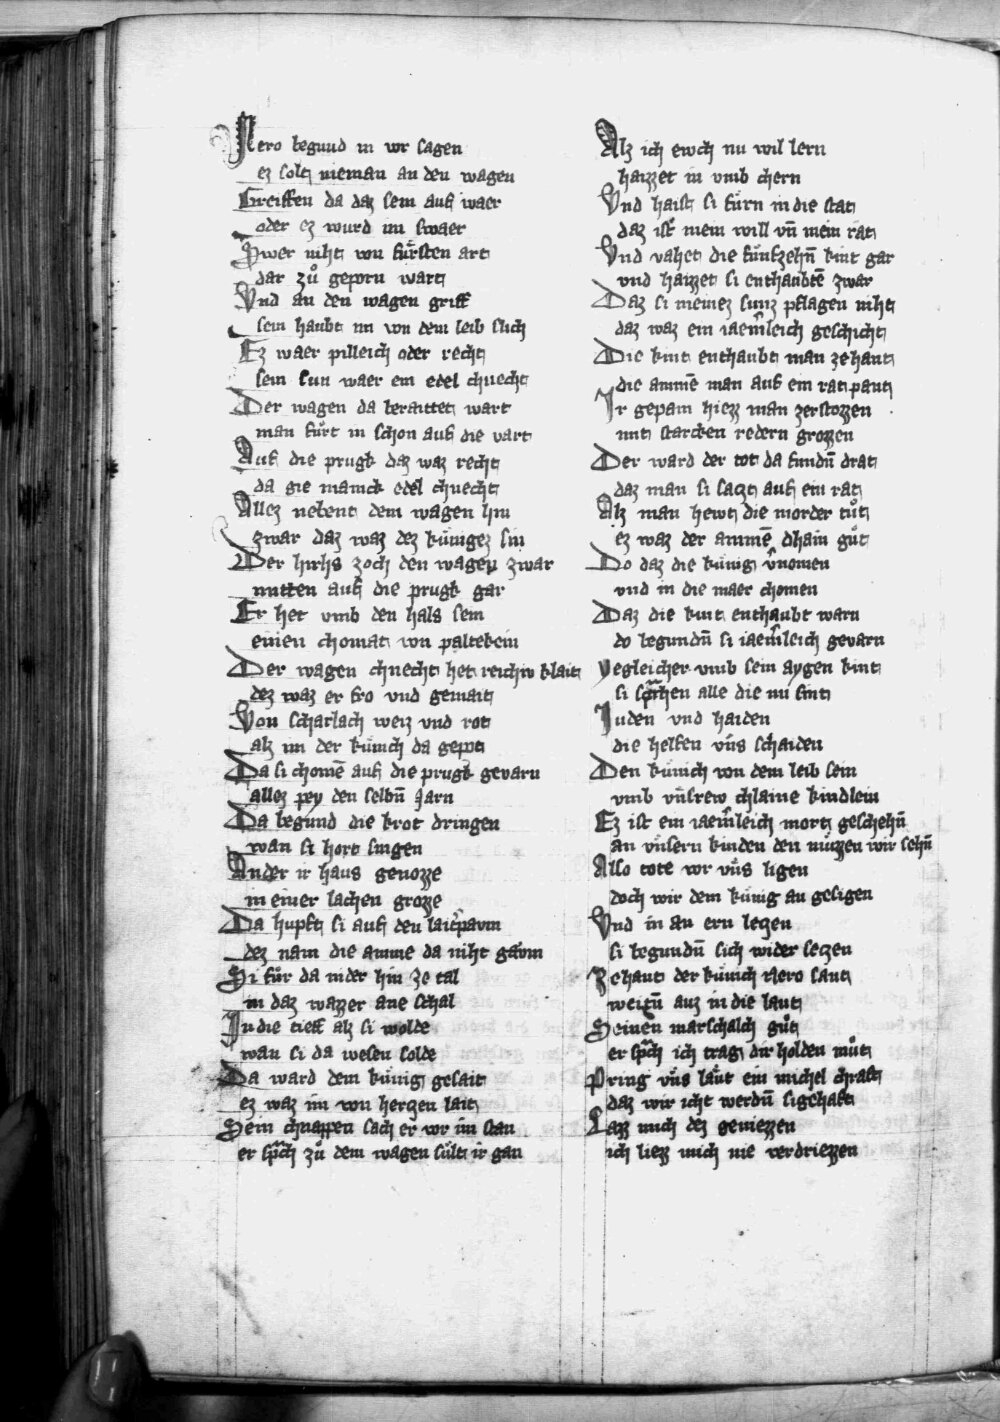 Nero begund in vor sagen
ez solt nieman an den wagen
Greiffen da daz sein auf waer
oder ez wurd im swaer
Swer niht von fürsten art
dar zů geporn wart
Vnd an den wagen griff
sein haubt im von dem leib slich
Ez waer pilleich oder recht
sein sun waer ein edel chnecht
Der wagen da beraittet wart
man fürt in schon auf die vart
Auf die prugk daz waz recht
da gie manick edel chnecht
Allez nebent dem wagen hin
zwar daz waz dez künigez sin
Der hirhs zoch den wagen zwar
mitten auf die prugk gar
Er het vmb den hals sein
einen chomat von palkbein
Der wagen chnecht het reichiv klait
dez waz er fro vnd gemait
Von scharlach weiz vnd rot
alz im der künich da gepot
Da si chomē auf die prugk gevarn
allez pey den selbn̄ jarn
Da begund die krot dringen
wan si hort singen
Ander ir haus genozze
in einer lachen grozze
Da hupft si auf den laicpavm
dez nam die amme da niht gavm
Si fůr da nider hin ze tal
in daz wazzer ane schal
In die tieff alz si wolde
wan si da wesen solde
Da ward dem künig gesait
ez waz im von herczen lait
Sein chnappen sach er vor im stan
er sprach zů dem wagen sült ir gan
Alz ich ewch nu wil lern
haizzet in vmb chern
Vnd haist si fürn in die stat
daz ist mein will vn̄ mein rat
Vnd vahet die fünfzehn̄ kint gar
vnd haizzet si enthaubtē zwar
Daz si meinez sunz pflagen niht
daz waz ein iaemerleich geschicht
Die kint enthaubt man zehant
die ammē man auf ein rat pant
Ir gepain hiezz man zerstozzen
mit starcken redern grozzen
Der ward der tot da fundn̄ drat
daz man si saczt auf ein rat
Alz man hewt die morder tůt
ez waz der ammē dhain gůt
Do daz die künig vernomen
vnd in die maer chomen
Daz die kint enthaubt warn
do begundn̄ si iaemerleich gevarn
yegleicher vmb sein aygen kint
si sprachen alle die nu sint
Iuden vnd haiden
die helfen vns schaiden
Den künich von dem leib sein
vmb vnsrew chlaine kindlein
Ez ist ein iaemerleich mort geschehn̄
an vnsern kinden den müzzen wir sehn̄
Also tote vor vns ligen
doch wir dem künig an gesigen
Vnd in an ern leczen
si begundn̄ sich wider seczen
Zehant der künich Nero sant
weitn̄ auz in die lant
Seinen marschalch gůt
er sprach ich trag dir holden můt
Pring vns läut ein michel chraft
daz wir icht werdn̄ sigehaft
Lazz mich dez geniezzen
ich liezz mich nie verdriezzen